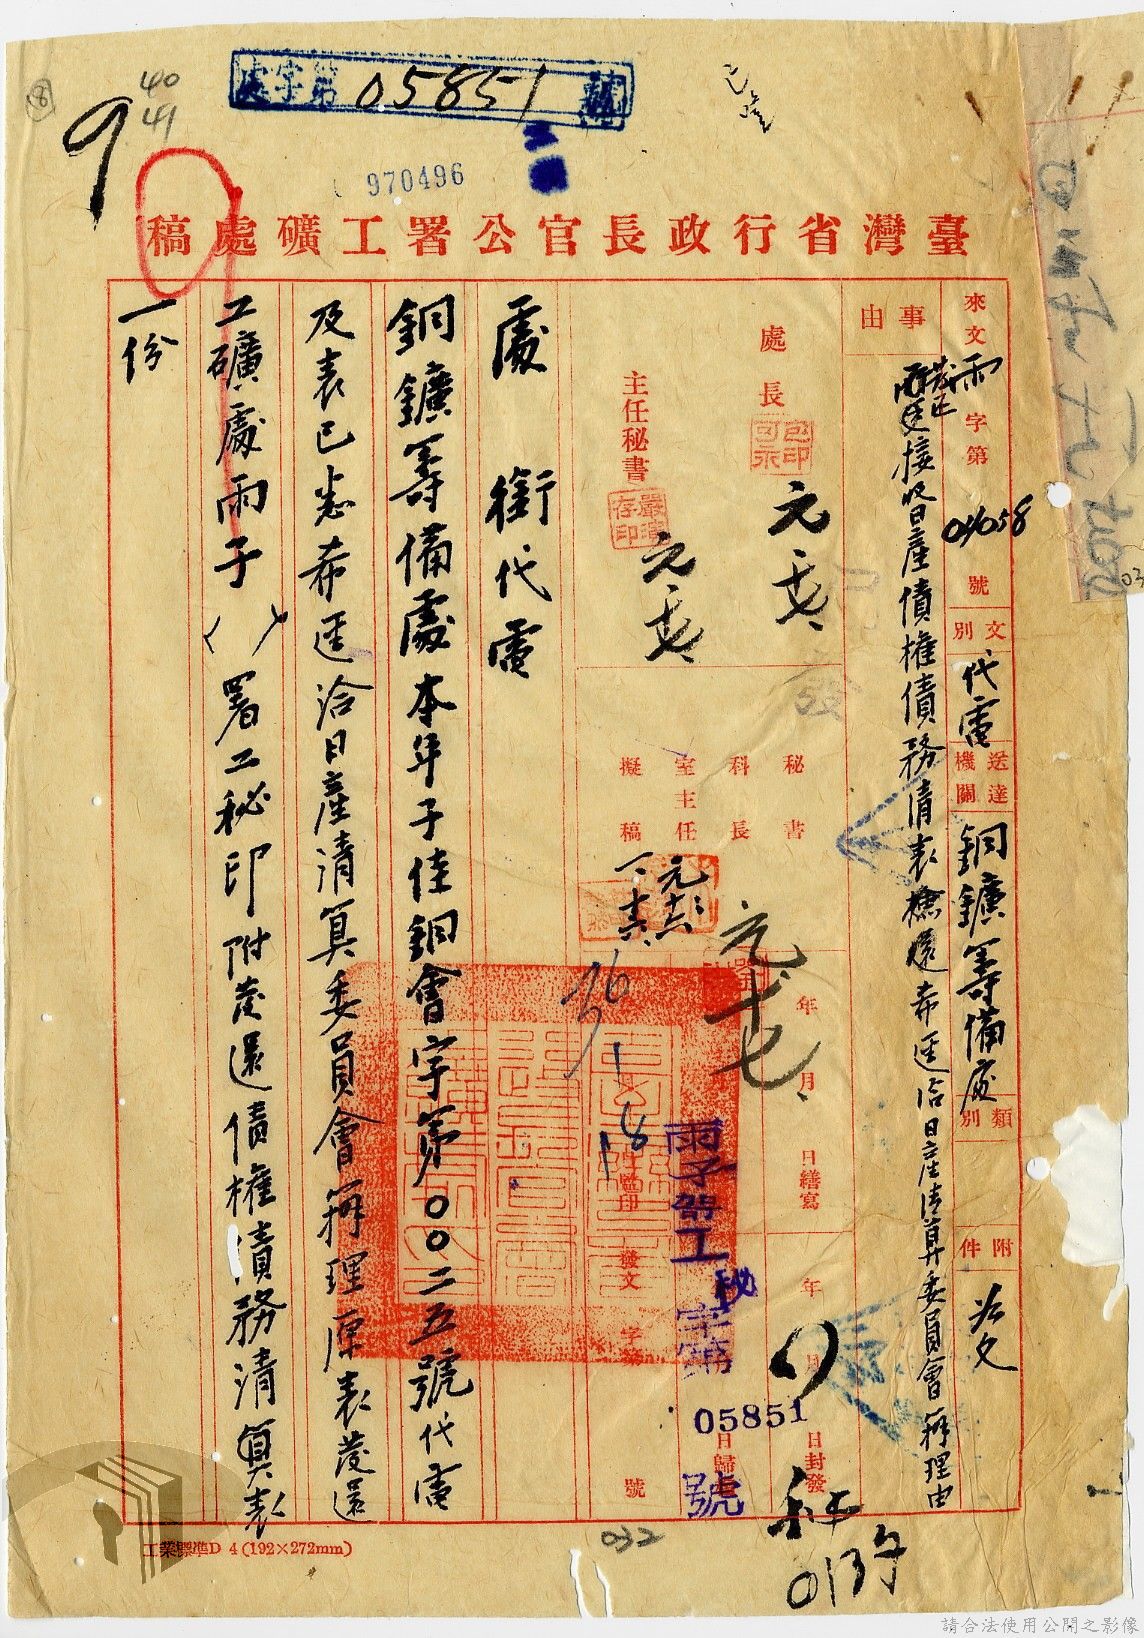 處字第05851號
970496
⑧
9
40
41
臺灣省行政長官公署工礦處稿
來文 雨字第04058號
文別 代電
送達機關 銅鑛籌備處
類別
附件 如文
事由
接收日產債權債務清表檢還希逕洽日產清算委員會辦理由
處長
包可永印
元 十七
主任秘書
嚴演存印
元 十七
秘書
科長
室主任
擬稿
元 十六
年 月 日繕寫
監印
年 月 日封發
發文 字第 號
雨子署工秘字第05851號
日歸
處銜代電
銅鑛籌備處本年子佳銅會字第〇〇二五號代電
及表已悉希逕洽日產清算委員會辦理原表發還
工礦處雨子（ ）署工秘印附發還債權債務清算表
一份
工業標準D 4 (192×272mm)
032
請合法使用公開之影像